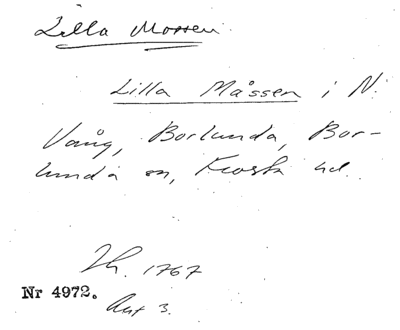 Lilla Mossen
Lilla Måssen i N.
Vång, Borlunda, Bor-
lunda sn, Frosta hd.
Th. 1767
Nr 4972.
Akt 3.